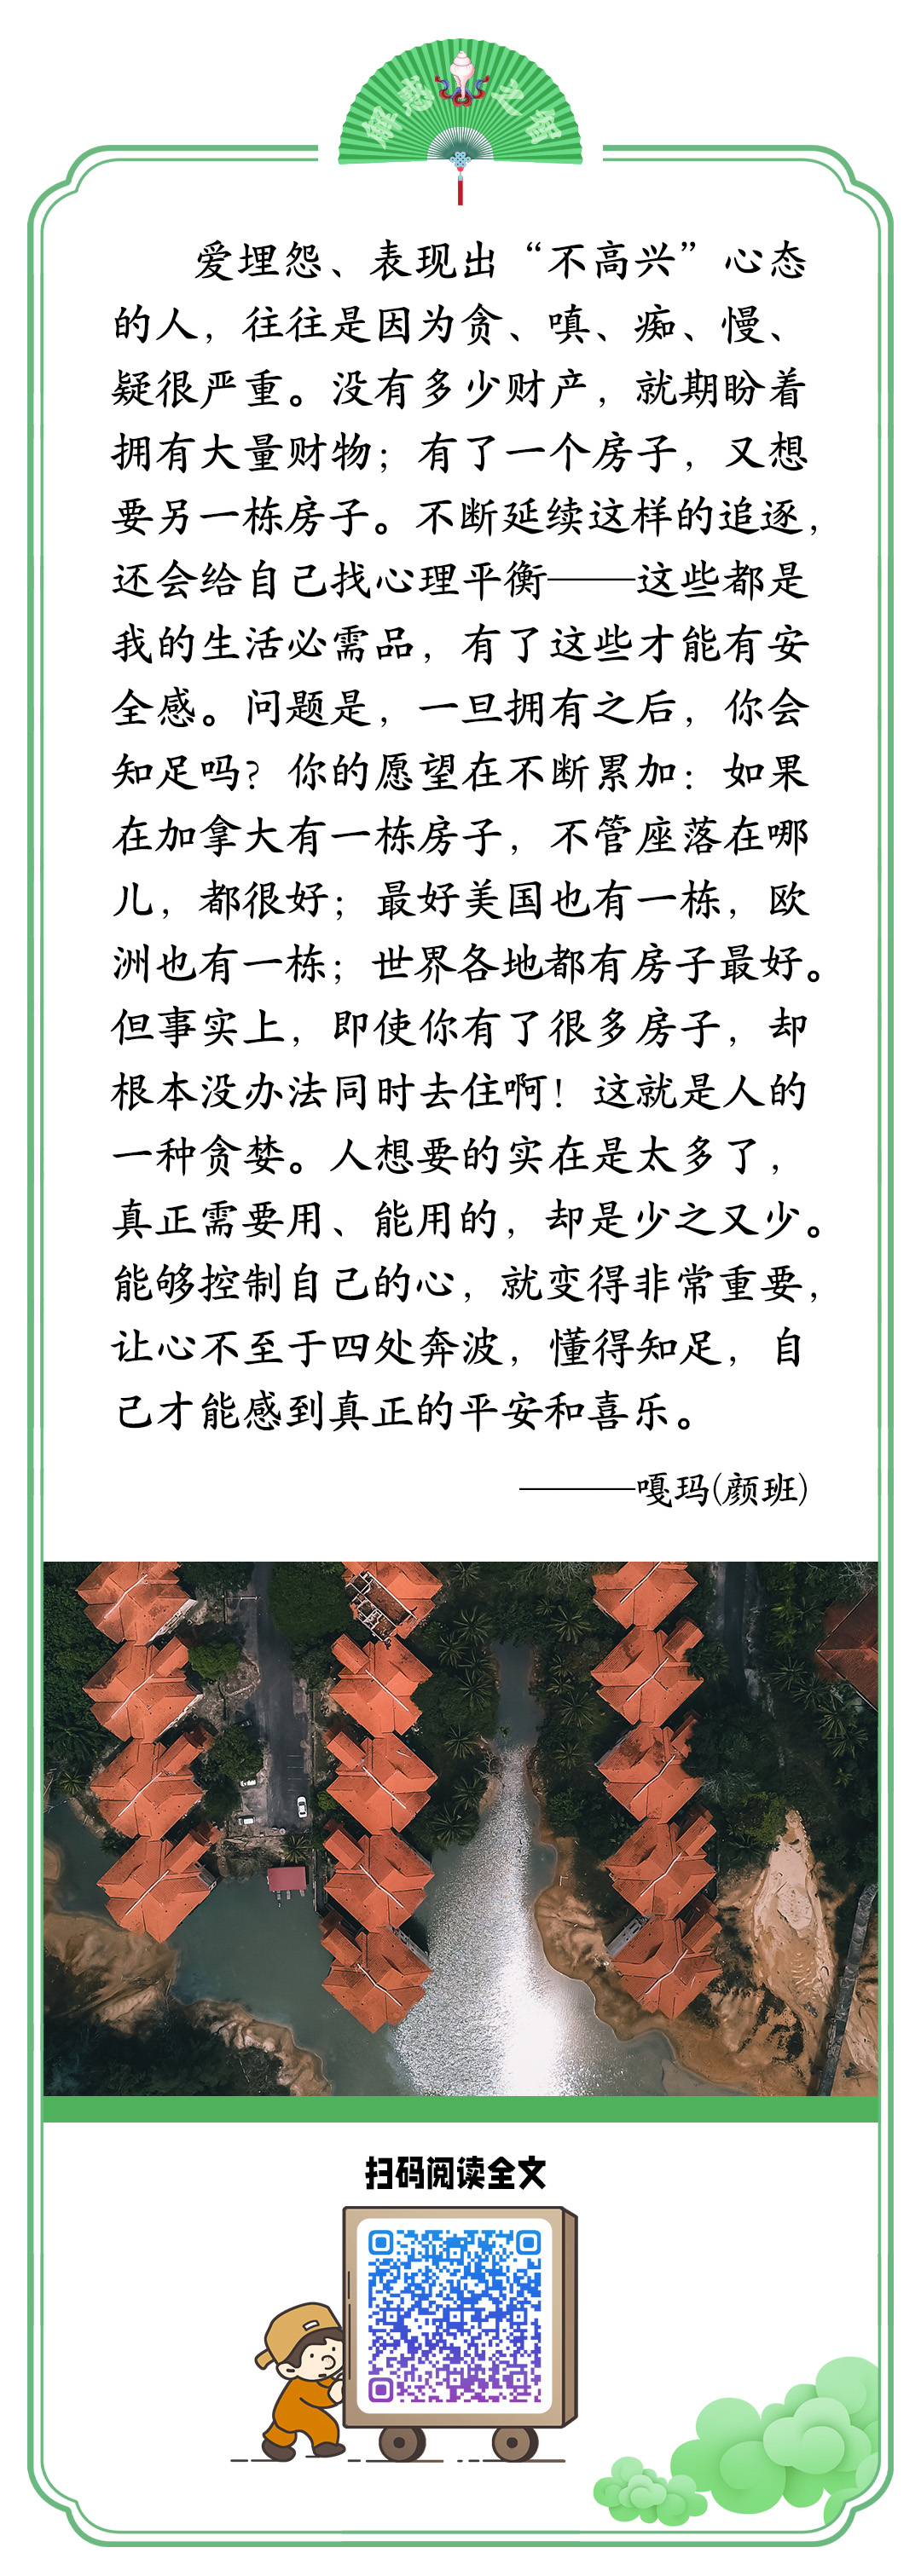 解惑之智
爱埋怨、表现出“不高兴”心态
的人，往往是因为贪、嗔、痴、慢、
疑很严重。没有多少财产，就期盼着
拥有大量财物；有了一个房子，又想
要另一栋房子。不断延续这样的追逐，
还会给自己找心理平衡——这些都是
我的生活必需品，有了这些才能有安
全感。问题是，一旦拥有之后，你会
知足吗？你的愿望在不断累加：如果
在加拿大有一栋房子，不管座落在哪
儿，都很好；最好美国也有一栋，欧
洲也有一栋；世界各地都有房子最好。
但事实上，即使你有了很多房子，却
根本没办法同时去住啊！这就是人的
一种贪婪。人想要的实在是太多了，
真正需要用、能用的，却是少之又少。
能够控制自己的心，就变得非常重要，
让心不至于四处奔波，懂得知足，自
己才能感到真正的平安和喜乐。
———嘎玛(颜班)
扫码阅读全文